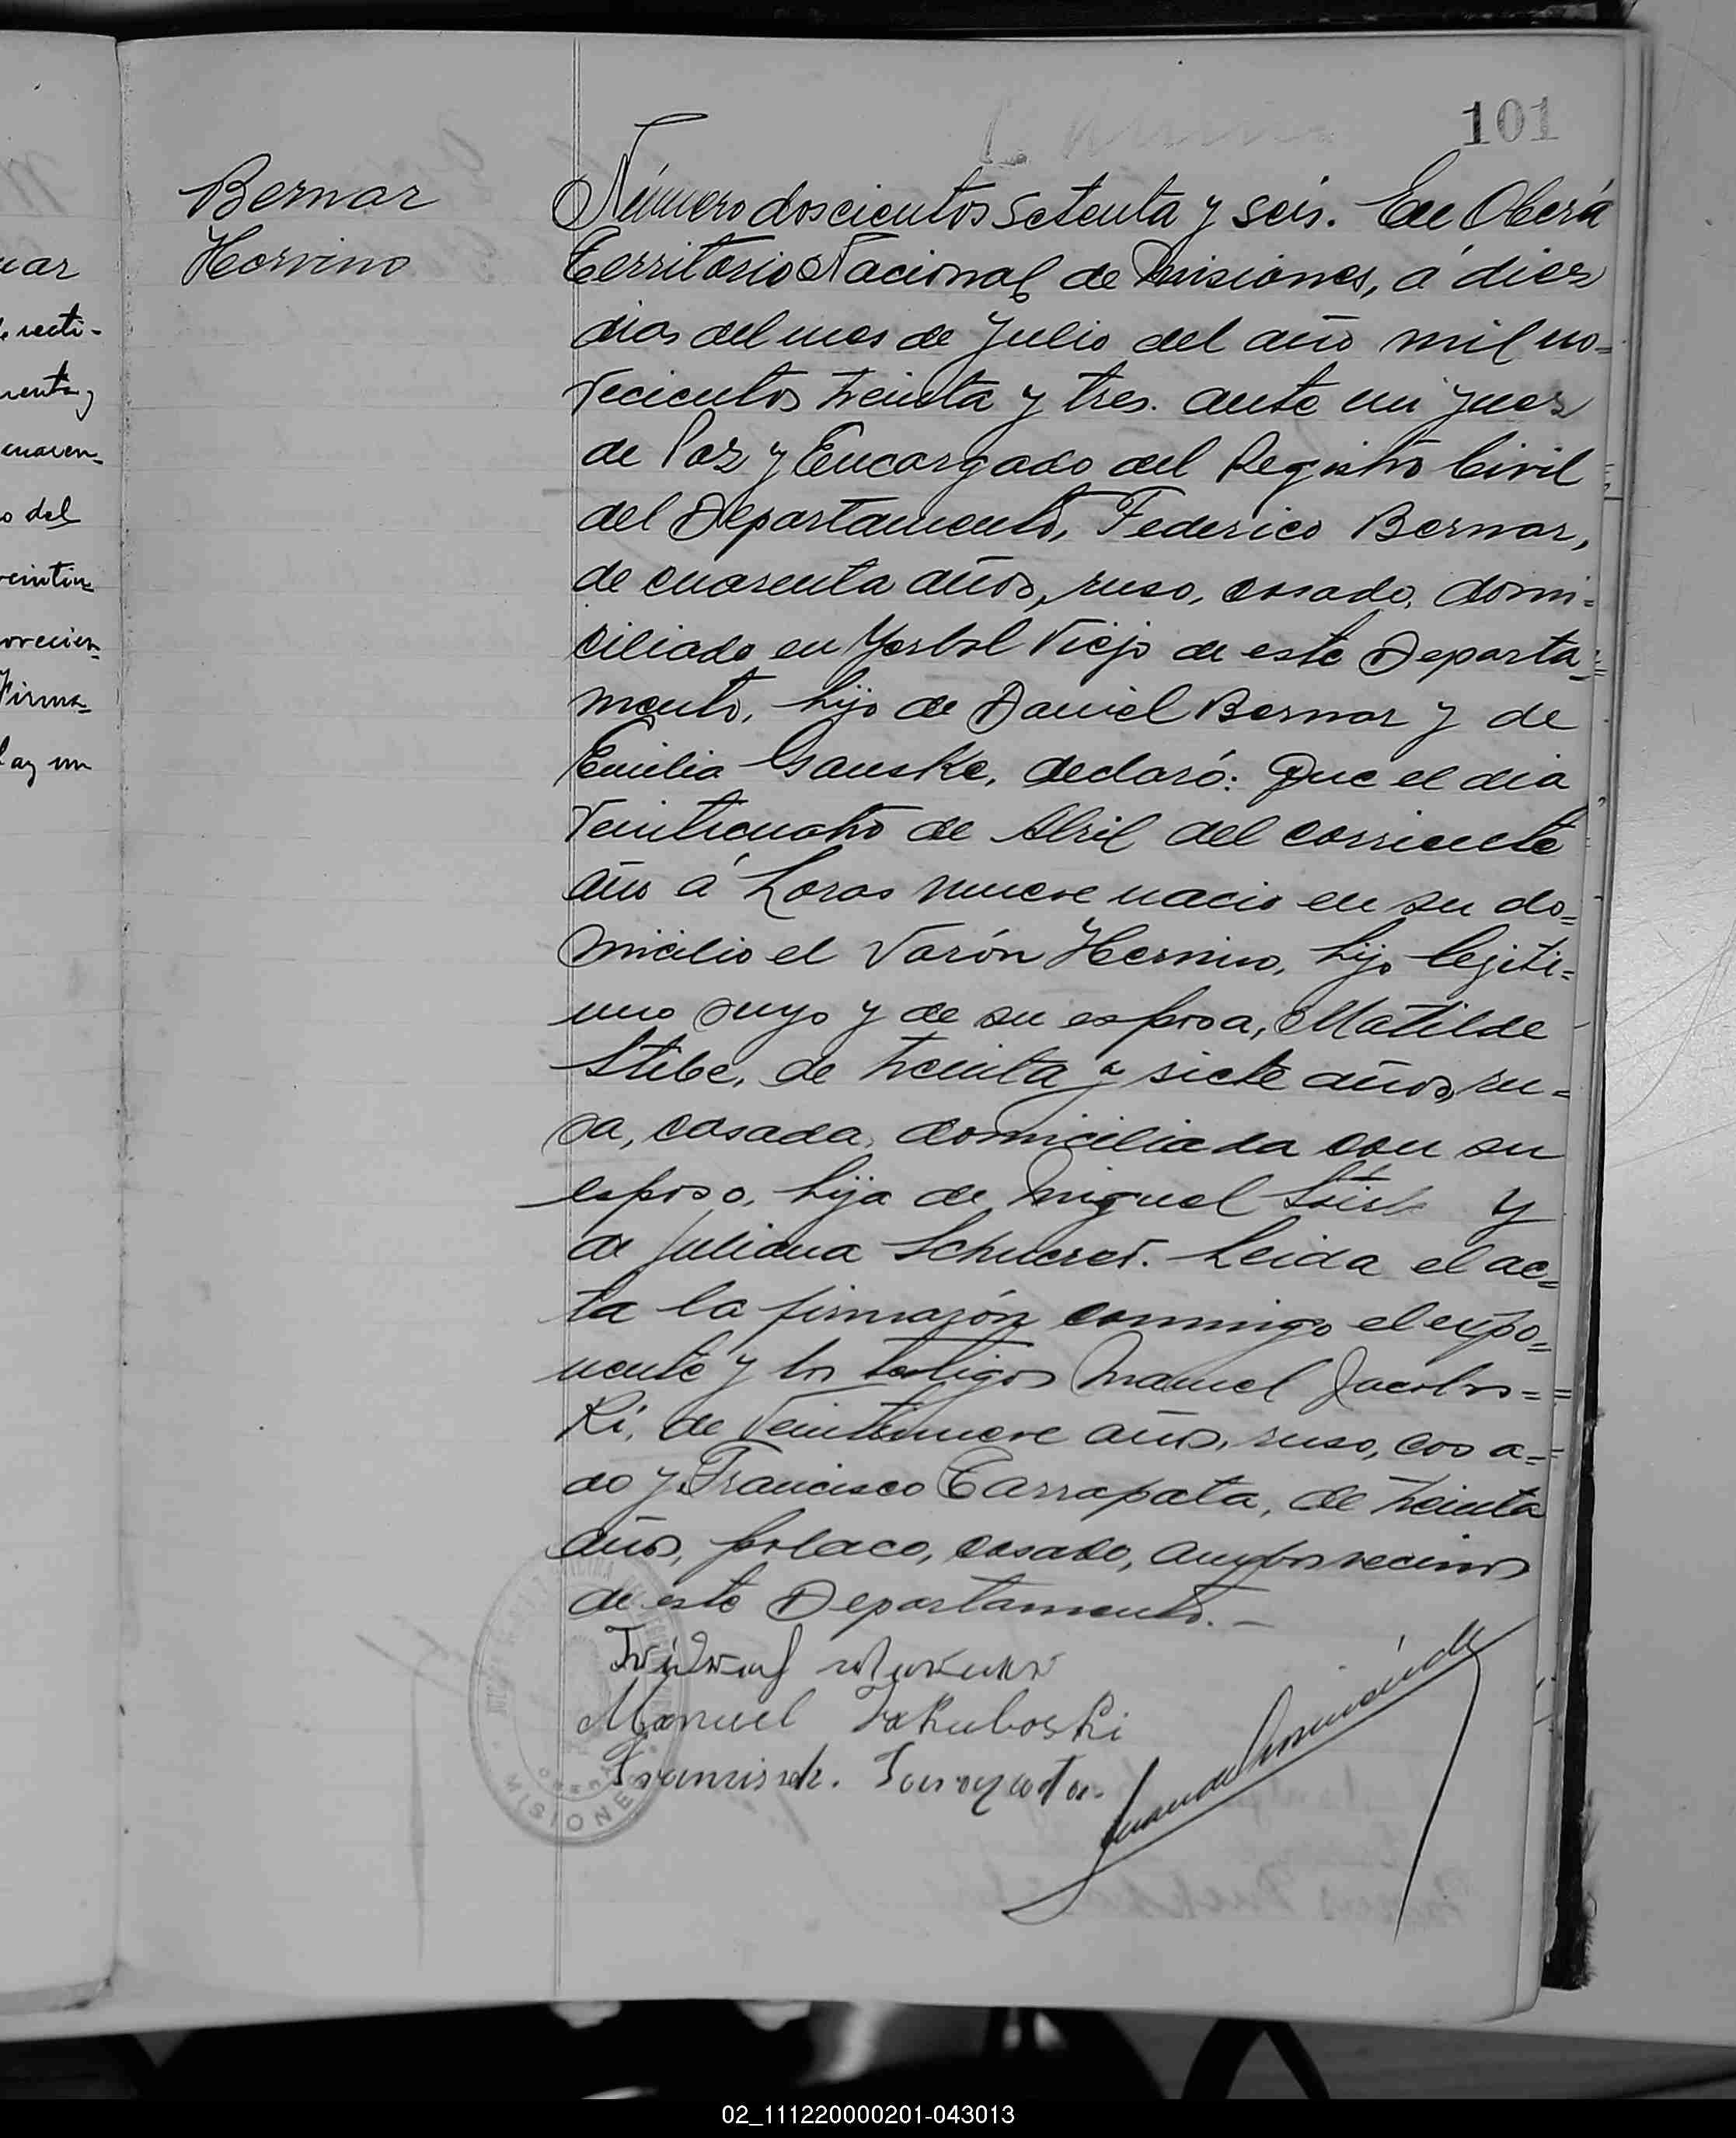 101
Bernar
Horvino
Número doscientos setenta y seis. En Oberá
Territorio Nacional de Misiones, á diez
dias del mes de Julio del año mil no=
vecientos treinta y tres. ante mi Juez
de Paz y Encargado del Registro Civil
del Departamento, Federico Bernar,
de cuarenta años, ruso, casado, domi=
ciliado en Yerbal Viejo de este Departa=
mento, hijo de Daniel Bernar y de
Emilia Gauske, declaró: Que el dia
Veinticuatro de Abril del corriente
año á horas nueve nacio en su do=
micilio el Varón Hermino, hijo legiti=
mo suyo y de su esposa, Matilde
Stibe, de treinta y siete años, ru=
sa, casada, domiciliada con su
esposo, hija de Miguel y
de Juliana Schueret. Leida el ac=
ta la firmarón conmigo el expo=
nente y los testigos Manuel Jacobos=
Ki, de Veintinueve años, ruso, casa=
do y Francisco Carrapata, de treinta
años, polaco, casado, ambos vecinos
de este Departamento.-
Manuel Jakuboski
MISIONES
uar
recti-
renta y
cuaren-
o del
veintiu
novecien-
Firma-
Hay un
02_111220000201-043013